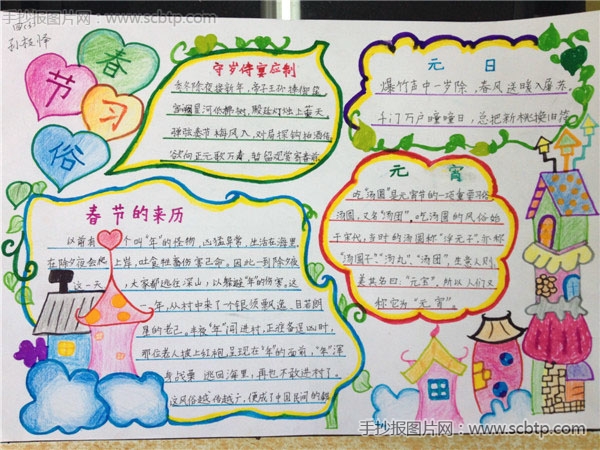 手抄报图片网：www.scbtp.com
四(5)
孙桂怿
春
节
习
俗
守岁侍宴应制
季冬除夜接新年，帝子王孙捧御筵
宫阙星河低拂树，殿廷灯烛上薰天
弹弦奏节梅风入，对局探钩柏酒传
欲向正元歌万寿，暂留欢赏寄春前
元 日
爆竹声中一岁除，春风送暖入屠苏
千门万户曈曈日，总把新桃换旧符
元 宵
吃"汤圆"是元宵节的一项重要习俗
汤圆，又名"汤团"，吃汤圆的风俗始
于宋代，当时的汤圆称"浮元子"，亦称
"汤圆子" "汤丸" "汤团"，生意人则
美其名曰："元宝"。所以人们又
称它为"元宵"。
春节的来历
以前有个叫"年"的怪物，凶猛异常，生活在海里
在除夕夜会爬上岸，吐食牲畜伤害己命，因此一到除夕
这一天，大家都逃往深山，以躲避"年"的伤害，这
一年，从村中来了个银须飘逸、目若朗
星的老已。半夜"年"闯进村，正准备逞凶时，
那位老人披上红袍，呈现在"年"的面前，"年"浑
身战栗 逃回海里，再也不敢进村了。
这风俗越传越广，便成了中国民间的
手抄报图片网：www.scbtp.com